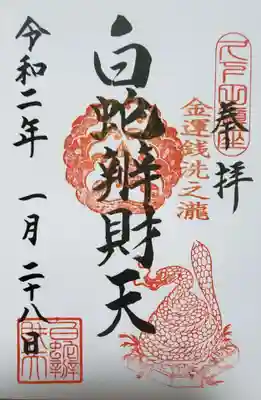 奉拝
金運銭洗之瀧
白蛇辨財天
令和二年 一月 二十八日